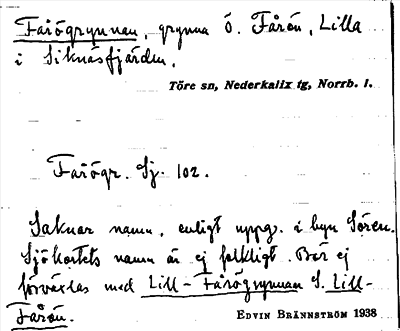 Farögrynnan, grynna ö. Fårön, Lilla
i Siknäsfjärden.
Töre sn, Nederkalix tg, Norrb. l.
Farögr. Sj. 102.
Saknar namn, enligt uppg. i byn Sören.
Sjökortets namn är ej folkligt. Bör ej
förväxlas med Lill-Fårögrynnan S. Lill-
Fårön.
EDVIN BRÄNNSTRÖM 1938